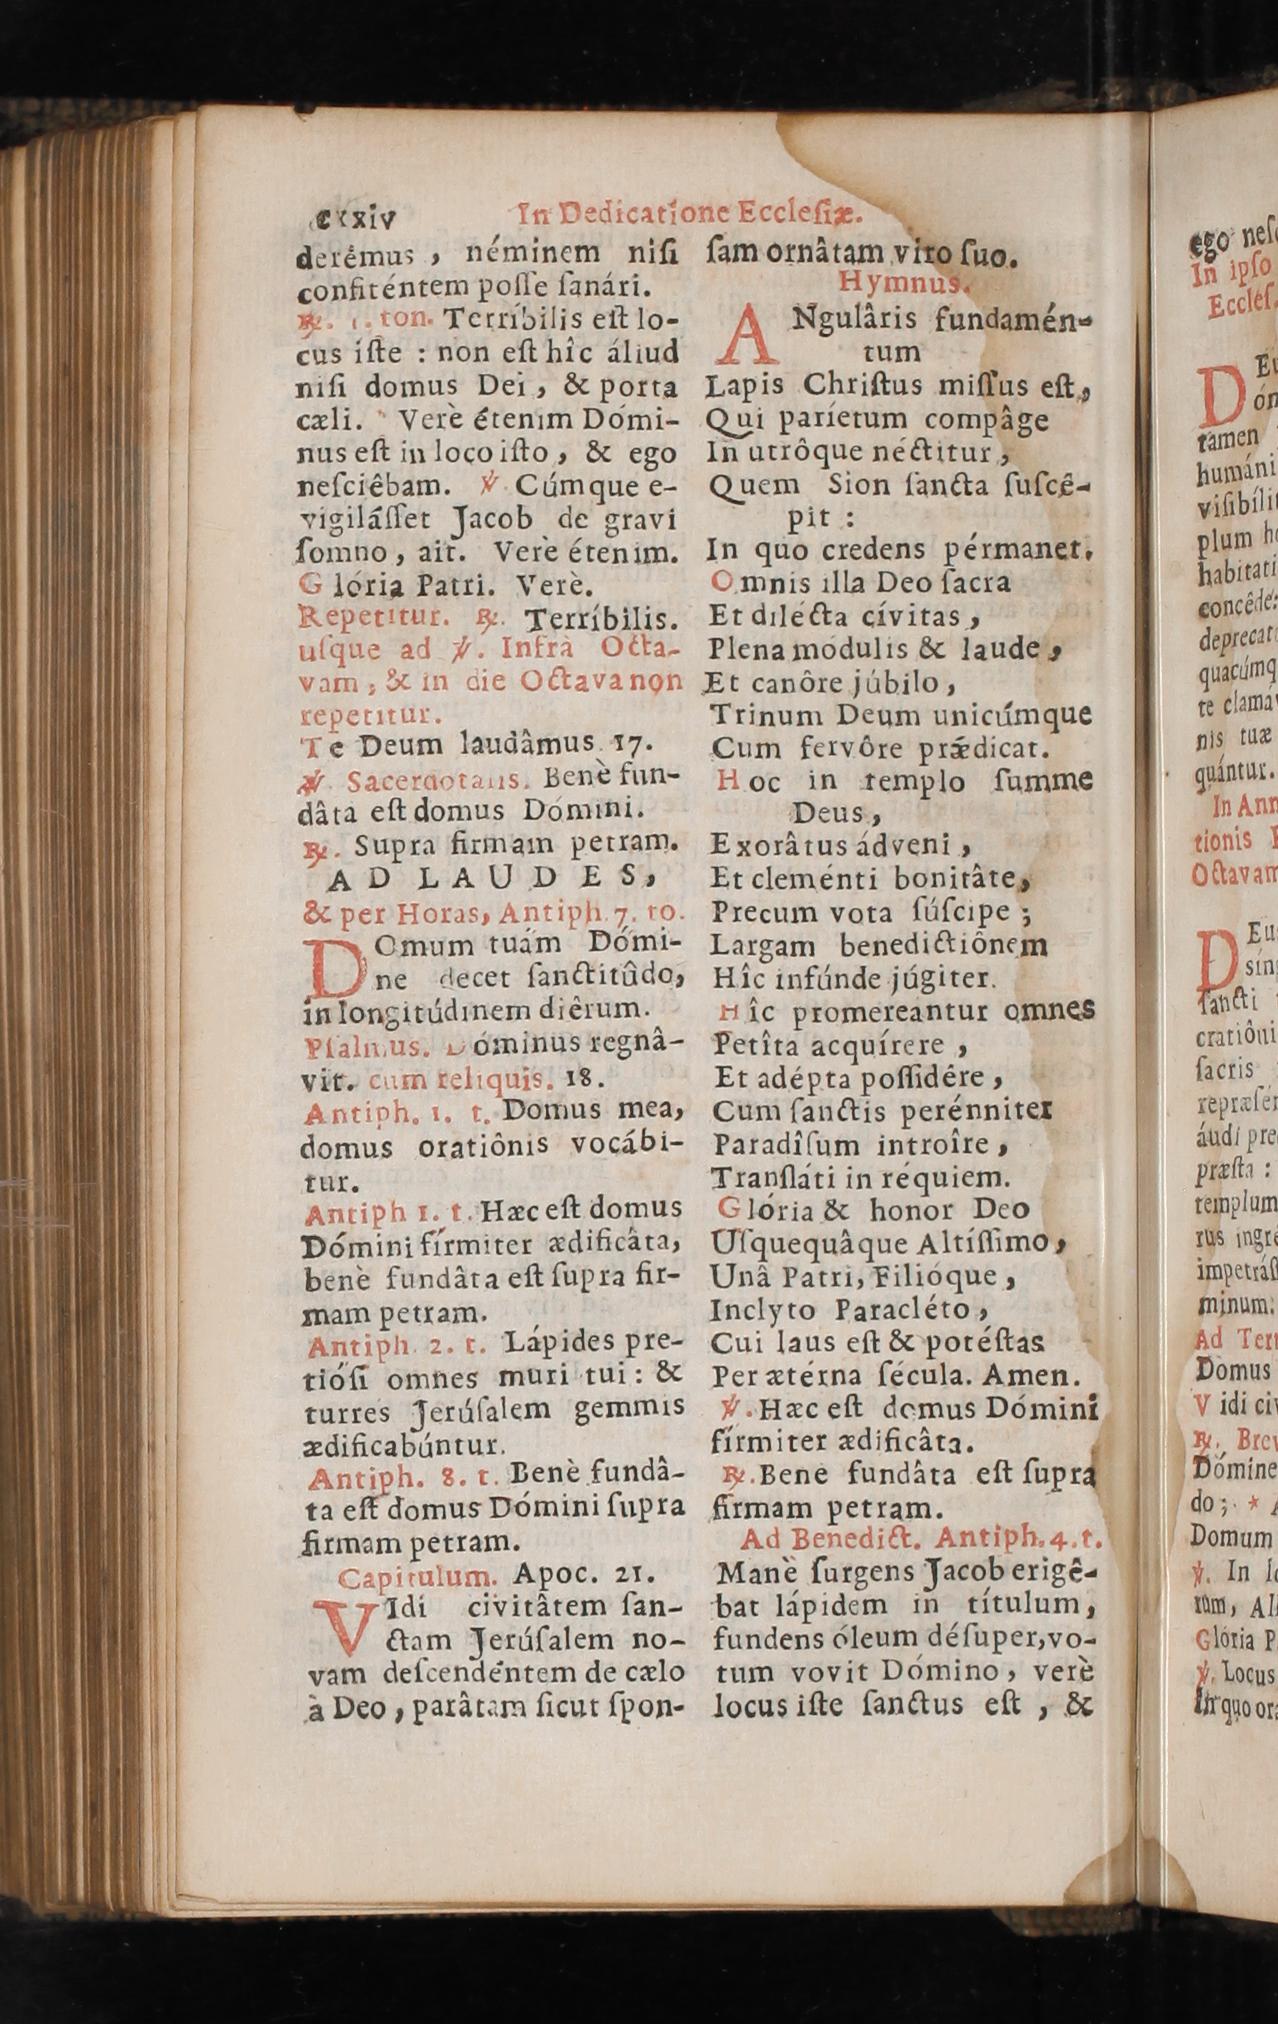 cxxiv In Dedicatione Ecclesiæ.
derémus, néminem nisi
confiténtem posse sanári.
℟. 1. ton. Terríbilis est lo-
cus iste : non est hîc áliud
nisi domus Dei, & porta
cæli. * Verè étenim Dómi-
nus est in loco isto, & ego
nesciêbam. ℣. Cúmque e-
vigilásset Jacob de gravi
somno, ait. Verè étenim.
Glória Patri. Verè.
Repetitur. ℟. Terríbilis.
usque ad ℣. Infrà Octa-
vam, & in die Octava non
repetitur.
Te Deum laudâmus. 17.
℣. Sacerdotalis. Benè fun-
dâta est domus Dómini.
℟. Supra firmam petram.
AD LAUDES,
& per Horas, Antiph. 7. to.
DOmum tuám Dómi-
ne decet sanctitûdo,
in longitúdinem diêrum.
Psalmus. Dóminus regnâ-
vit. cum reliquis. 18.
Antiph. 1. t. Domus mea,
domus oratiônis vocábi-
tur.
Antiph 1. t. Hæc est domus
Dómini fírmiter ædificâta,
benè fundâta est supra fir-
mam petram.
Antiph. 2. t. Lápides pre-
tiósi omnes muri tui: &
turres Jerúsalem gemmis
ædificabúntur.
Antiph. 8. t. Benè fundâ-
ta est domus Dómini supra
firmam petram.
Capitulum. Apoc. 21.
VIdi civitâtem san-
ctam Jerúsalem no-
vam descendéntem de cælo
à Deo, parâtam sicut spon-
sam ornâtam viro suo.
Hymnus.
ANgulâris fundamén-
tum
Lapis Christus missus est,
Qui paríetum compâge
In utrôque néctitur,
Quem Sion sancta suscê-
pit :
In quo credens pérmanet.
Omnis illa Deo sacra
Et dilécta cívitas,
Plena módulis & laude,
Et canôre júbilo,
Trinum Deum unicúmque
Cum fervôre prǽdicat.
Hoc in templo summe
Deus,
Exorâtus ádveni,
Et cleménti bonitâte,
Precum vota súscipe ;
Largam benedictiônem
Hîc infúnde júgiter.
Hîc promereantur omnes
Petîta acquírere,
Et adépta possidêre,
Cum sanctis perénniter
Paradîsum introîre,
Transláti in réquiem.
Glória & honor Deo
Usquequâque Altíssimo,
Unâ Patri, Filióque,
Inclyto Paracléto,
Cui laus est & potéstas
Per ætérna sécula. Amen.
℣. Hæc est domus Dómini
fírmiter ædificâta.
℟. Bene fundâta est supra
firmam petram.
Ad Benedict. Antiph. 4. t.
Manè surgens Jacob erigê-
bat lápidem in títulum,
fundens óleum désuper, vo-
tum vovit Dómino, verè
locus iste sanctus est, &